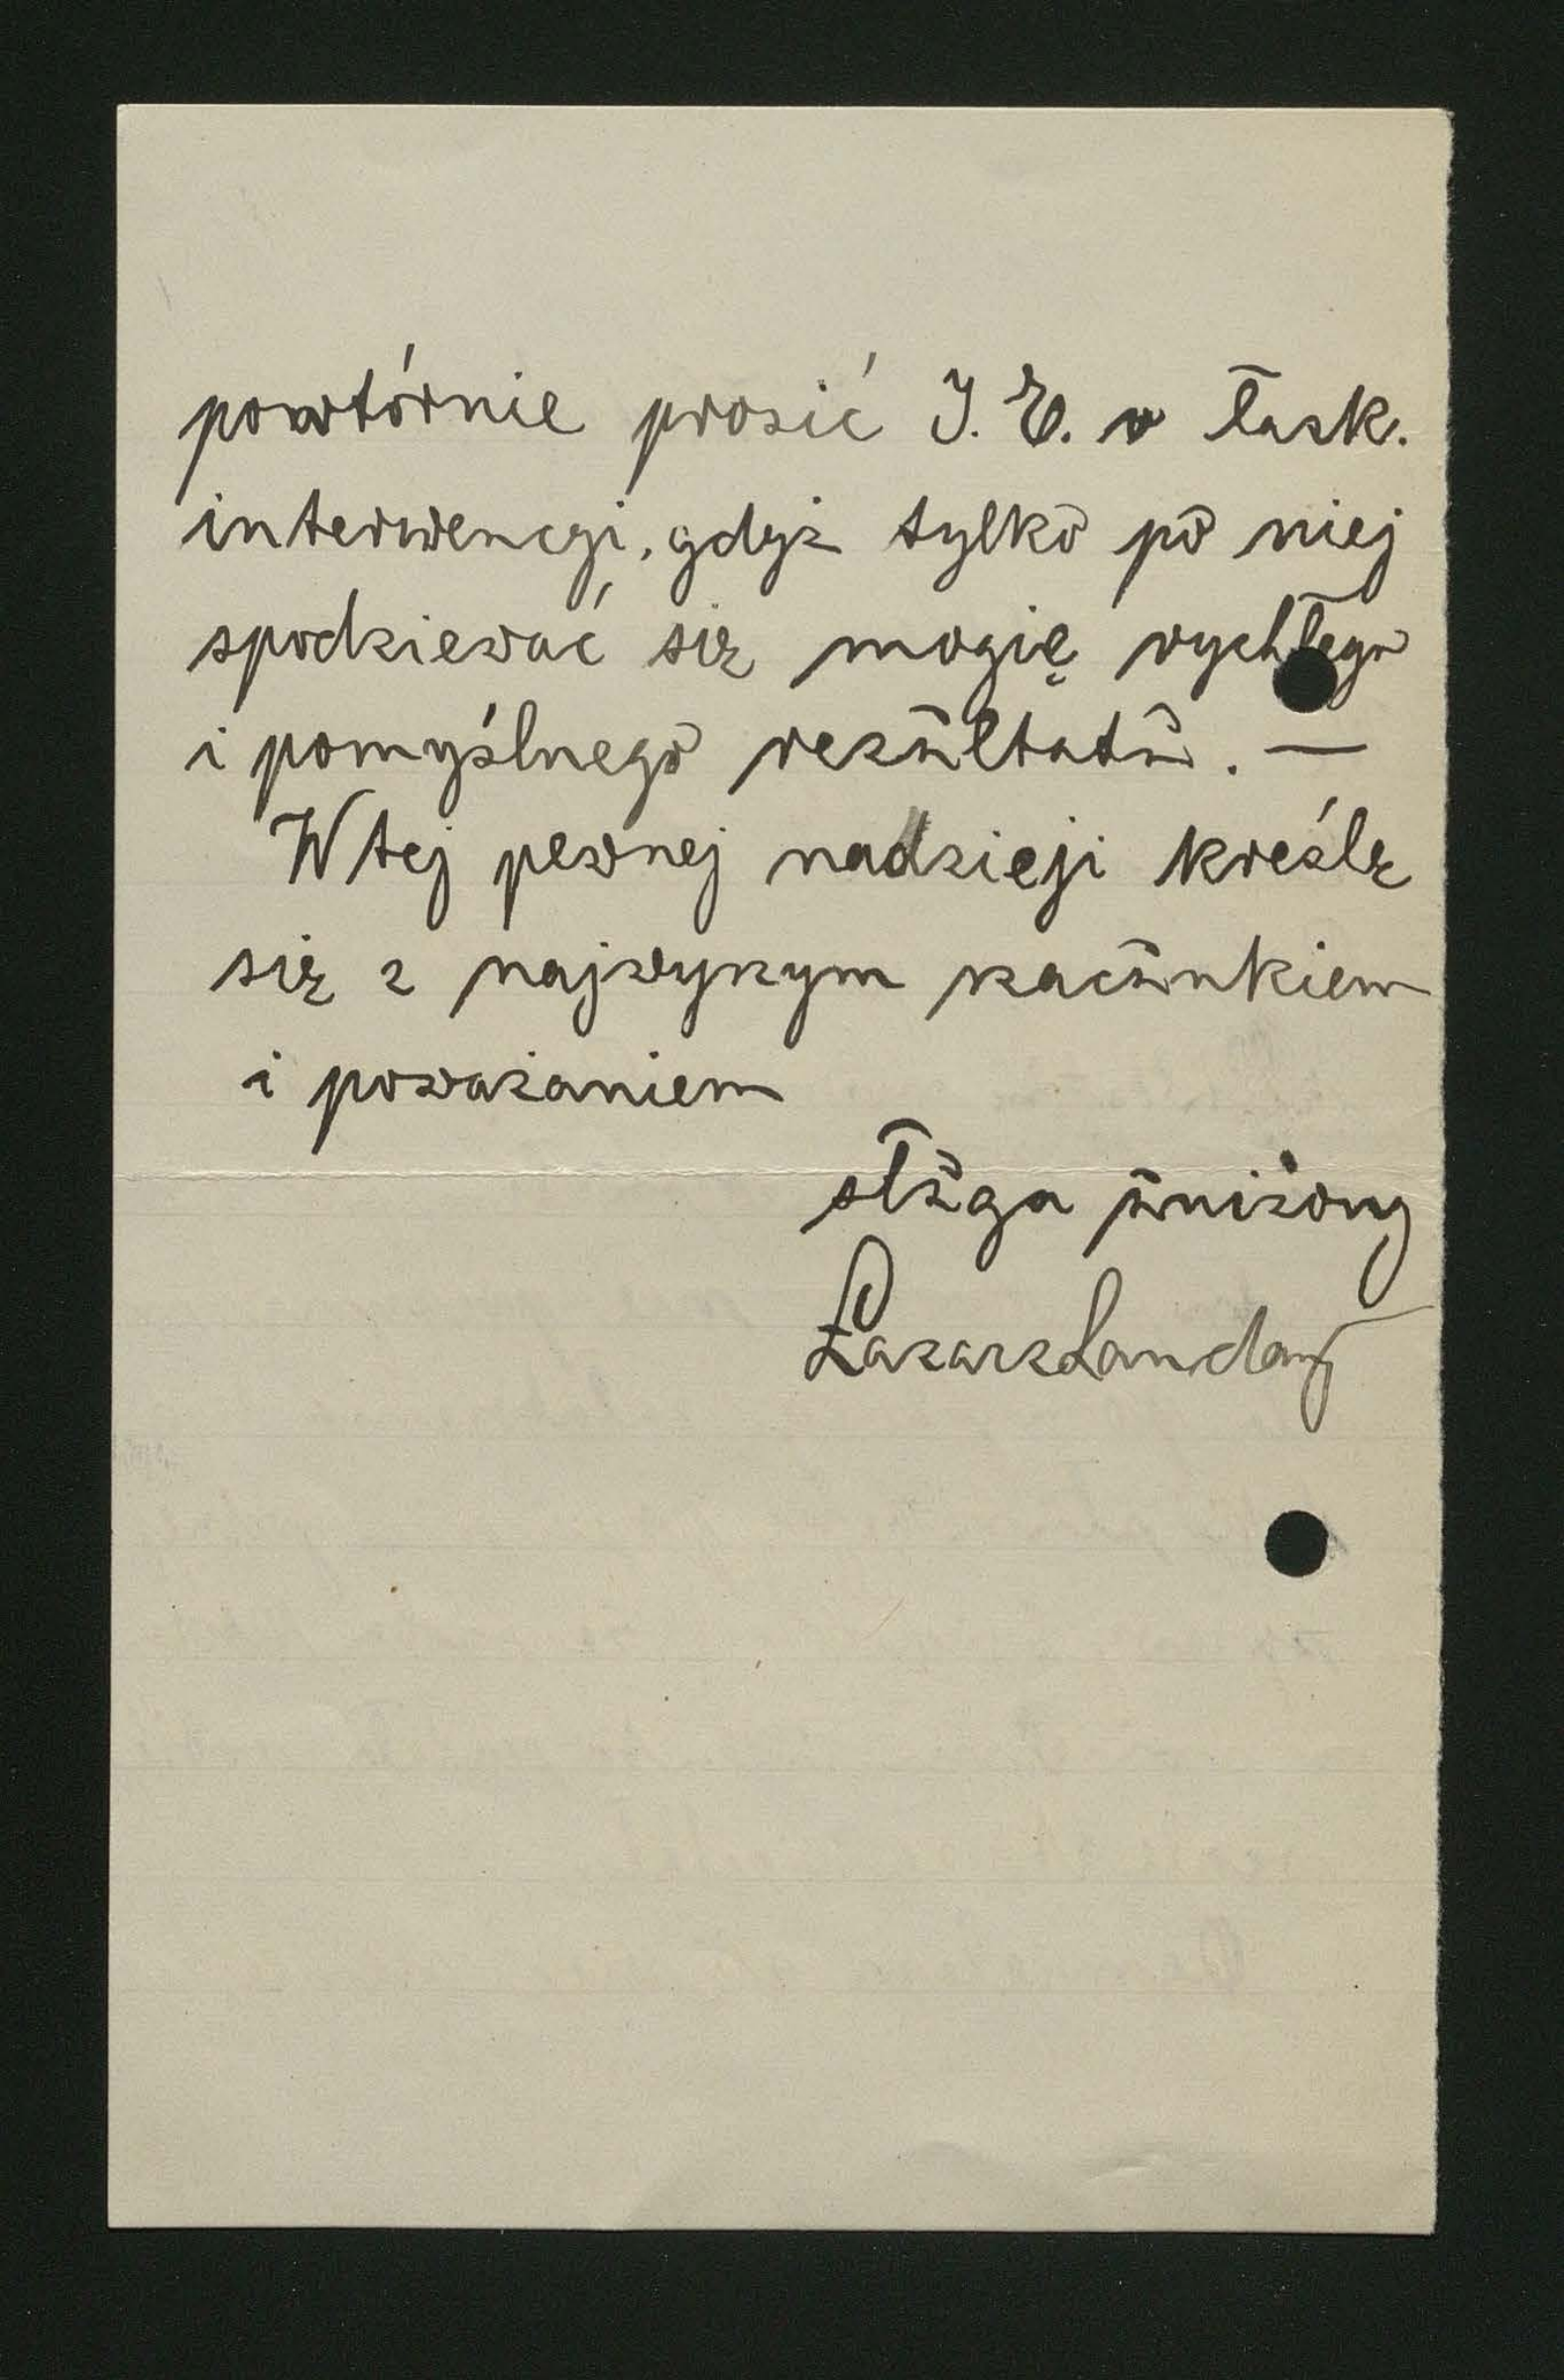 powtórnie prosić J. E. o łask.
interwencyi, gdyż tylko po niej
spodziewać się mogię rychłego
i pomyślnego rezultatu. —
W tej pewnej nadzieji kreślę
się z najwyszym szacunkiem
i poważaniem
sługa uniżony
Łazarz Landau